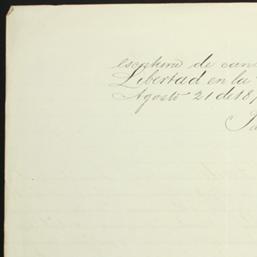 escritura de
Libertad en la
Agosto 21 de 18